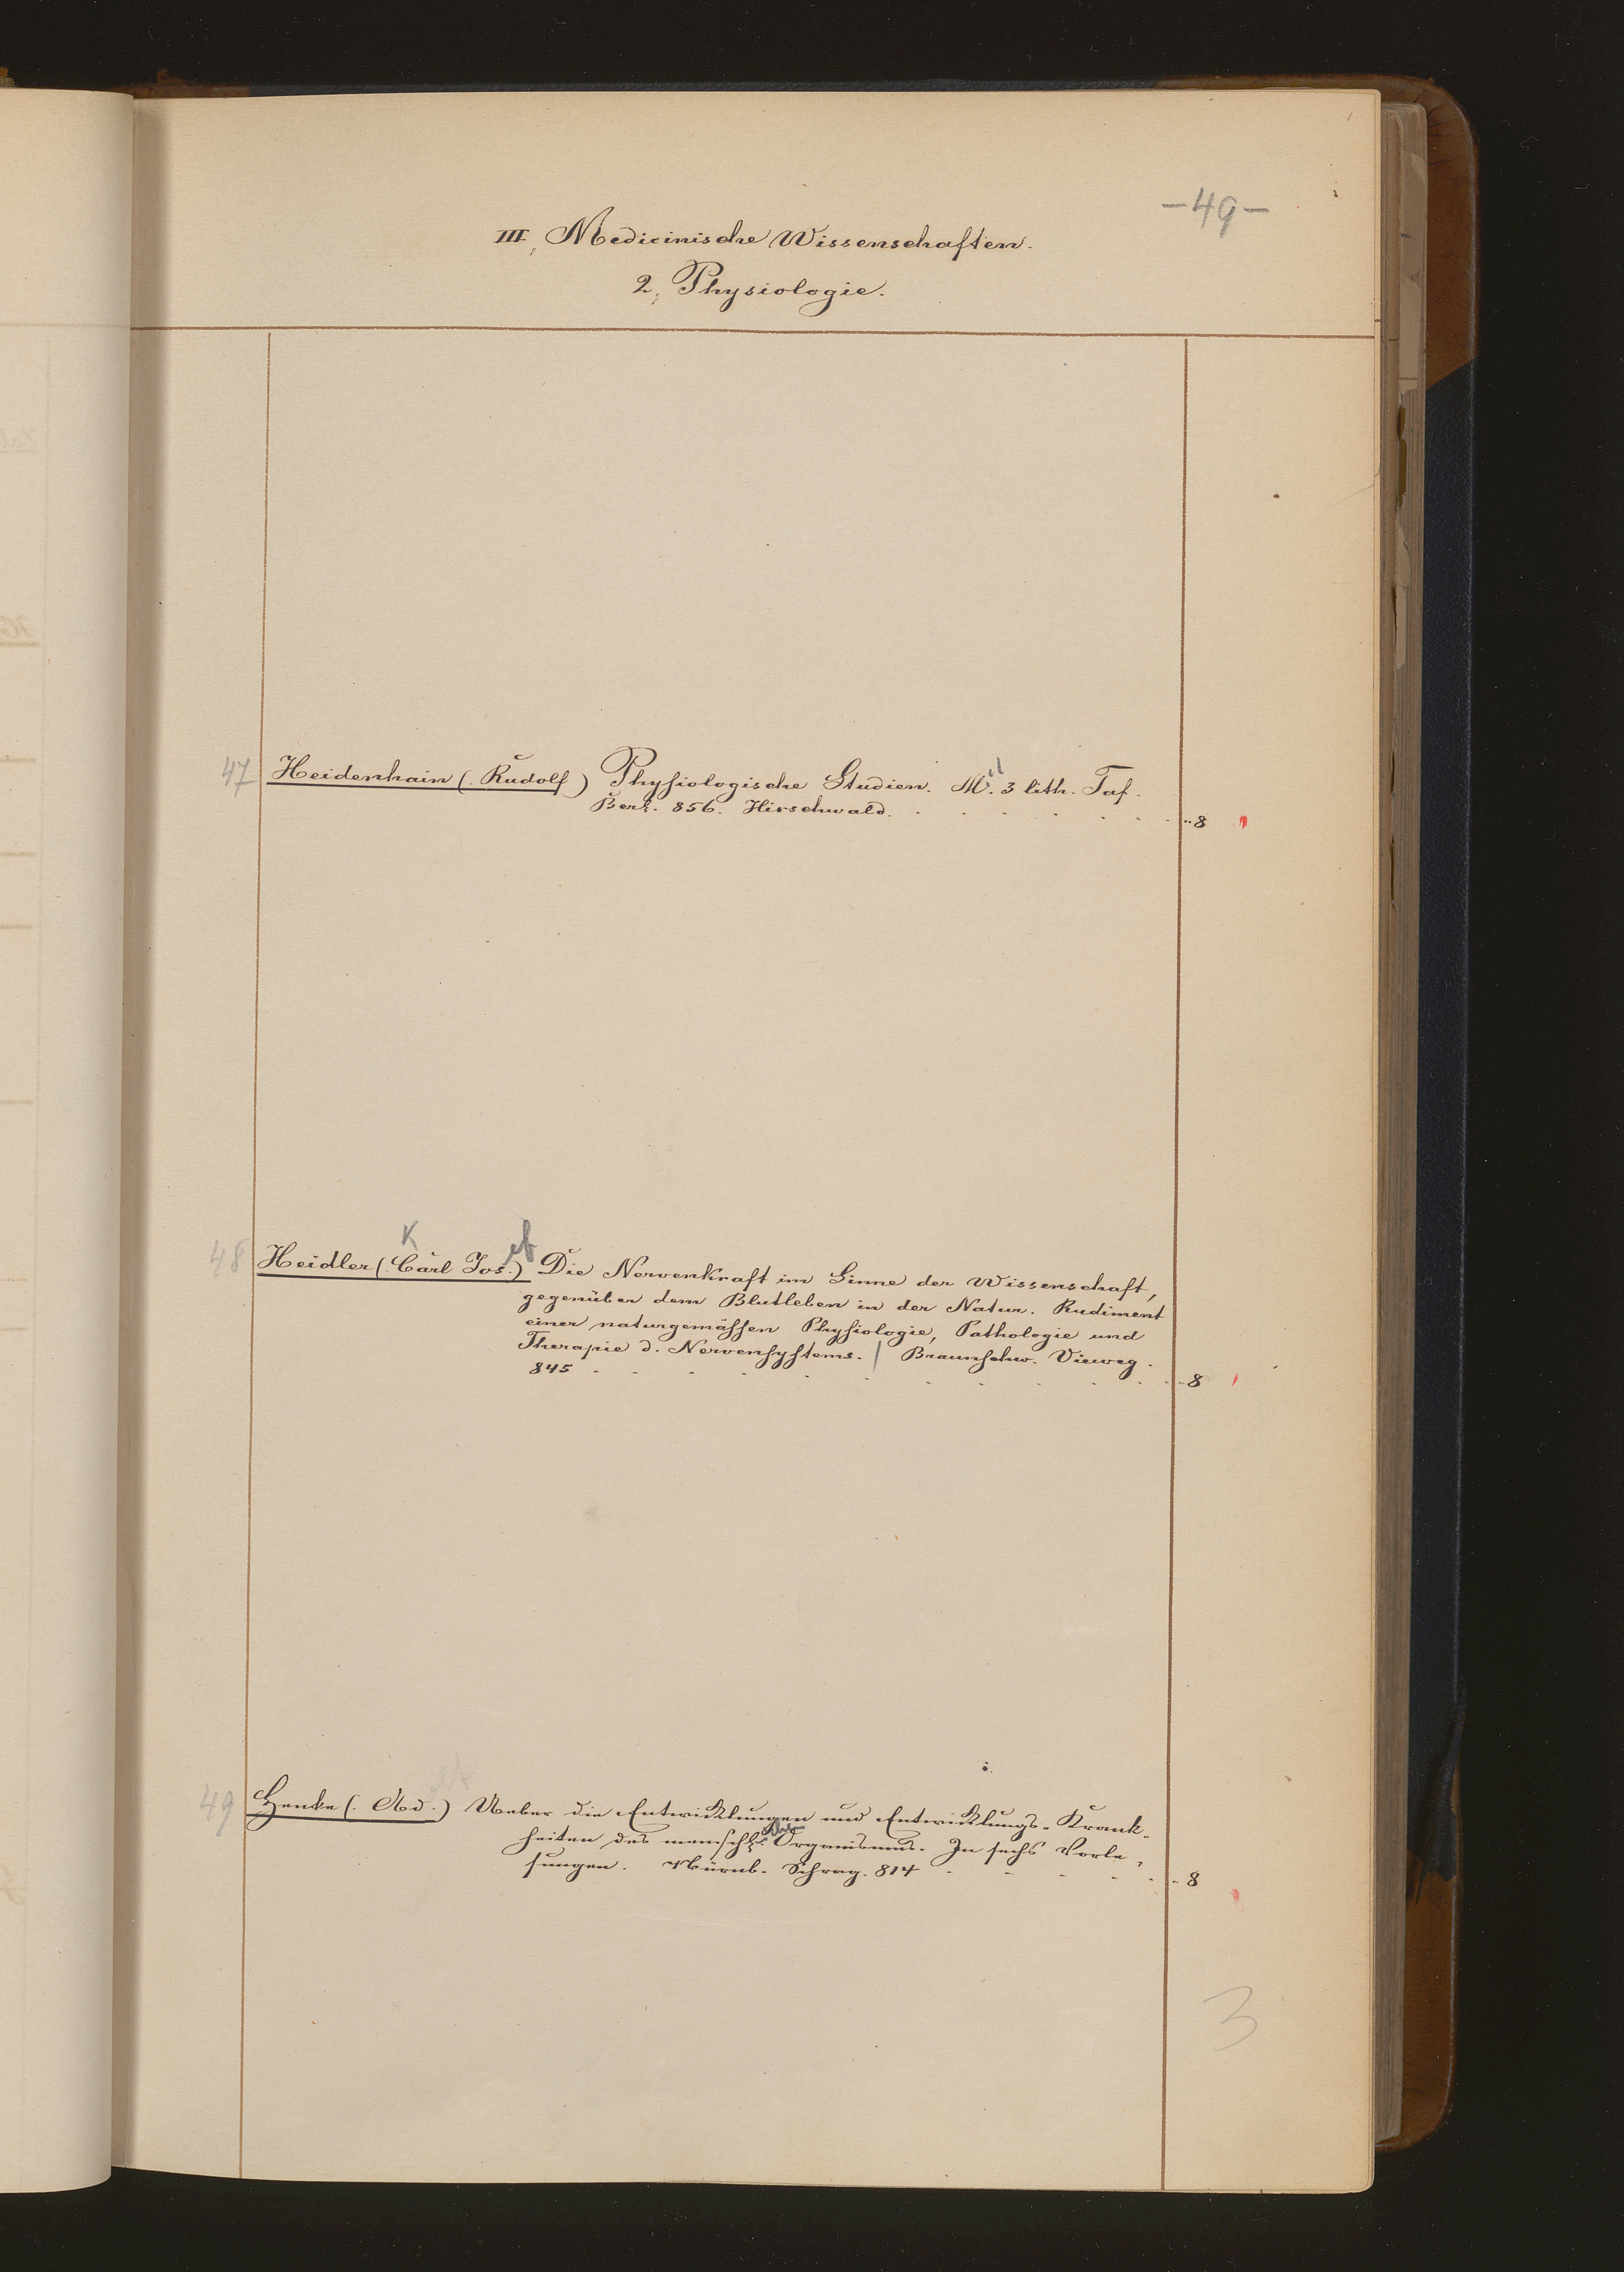 -49-
III, Medicinische Wissenschaften.
2, Physiologie.
47 Heidenhain (. Rudolf) Physiologische Studien. M. 3 lith. Taf.
Berl. 856. Hirschwald. 8
K ef
48 Heidler (. Carl Jos.) Die Nervenkraft im Sinne der Wissenschaft,
gegenüber dem Blutleben in der Natur. Rudiment
einer naturgemässen Physiologie, Pathologie und
Therapie d. Nervensystems. | Braunschw. Vieweg.
845 8
olf
49 Henke (. Ad.) Ueber die Entwicklungen und Entwicklungs-Krank-
heiten des menschl. Organismus. In sechs Vorle-
sungen. Nürnb. Schrag. 814 8
3